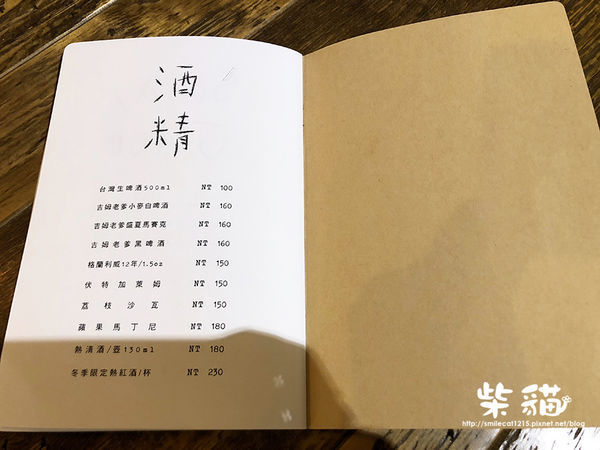 酒
精
台灣生啤酒500ml NT 100
吉姆老爹小麥白啤酒 NT 160
吉姆老爹盛夏馬賽克 NT 160
吉姆老爹黑啤酒 NT 160
格蘭利威12年/1.5oz NT 150
伏特加萊姆 NT 150
荔枝沙瓦 NT 150
蘋果馬丁尼 NT 180
熱清酒/壺130ml NT 180
冬季限定熱紅酒/杯 NT 230
柴貓
http://smilecat1215.pixnet.net/blog